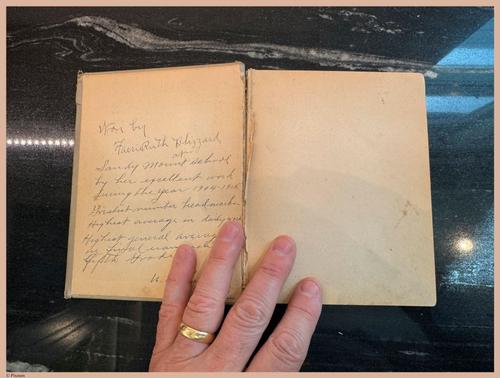 Won by
Ruth Blizzard
at
Sandy Mount School
by her excellent work
during the year
Greatest number head marks
Highest average in
Highest general average
in final
fifth Grade
© Picnom